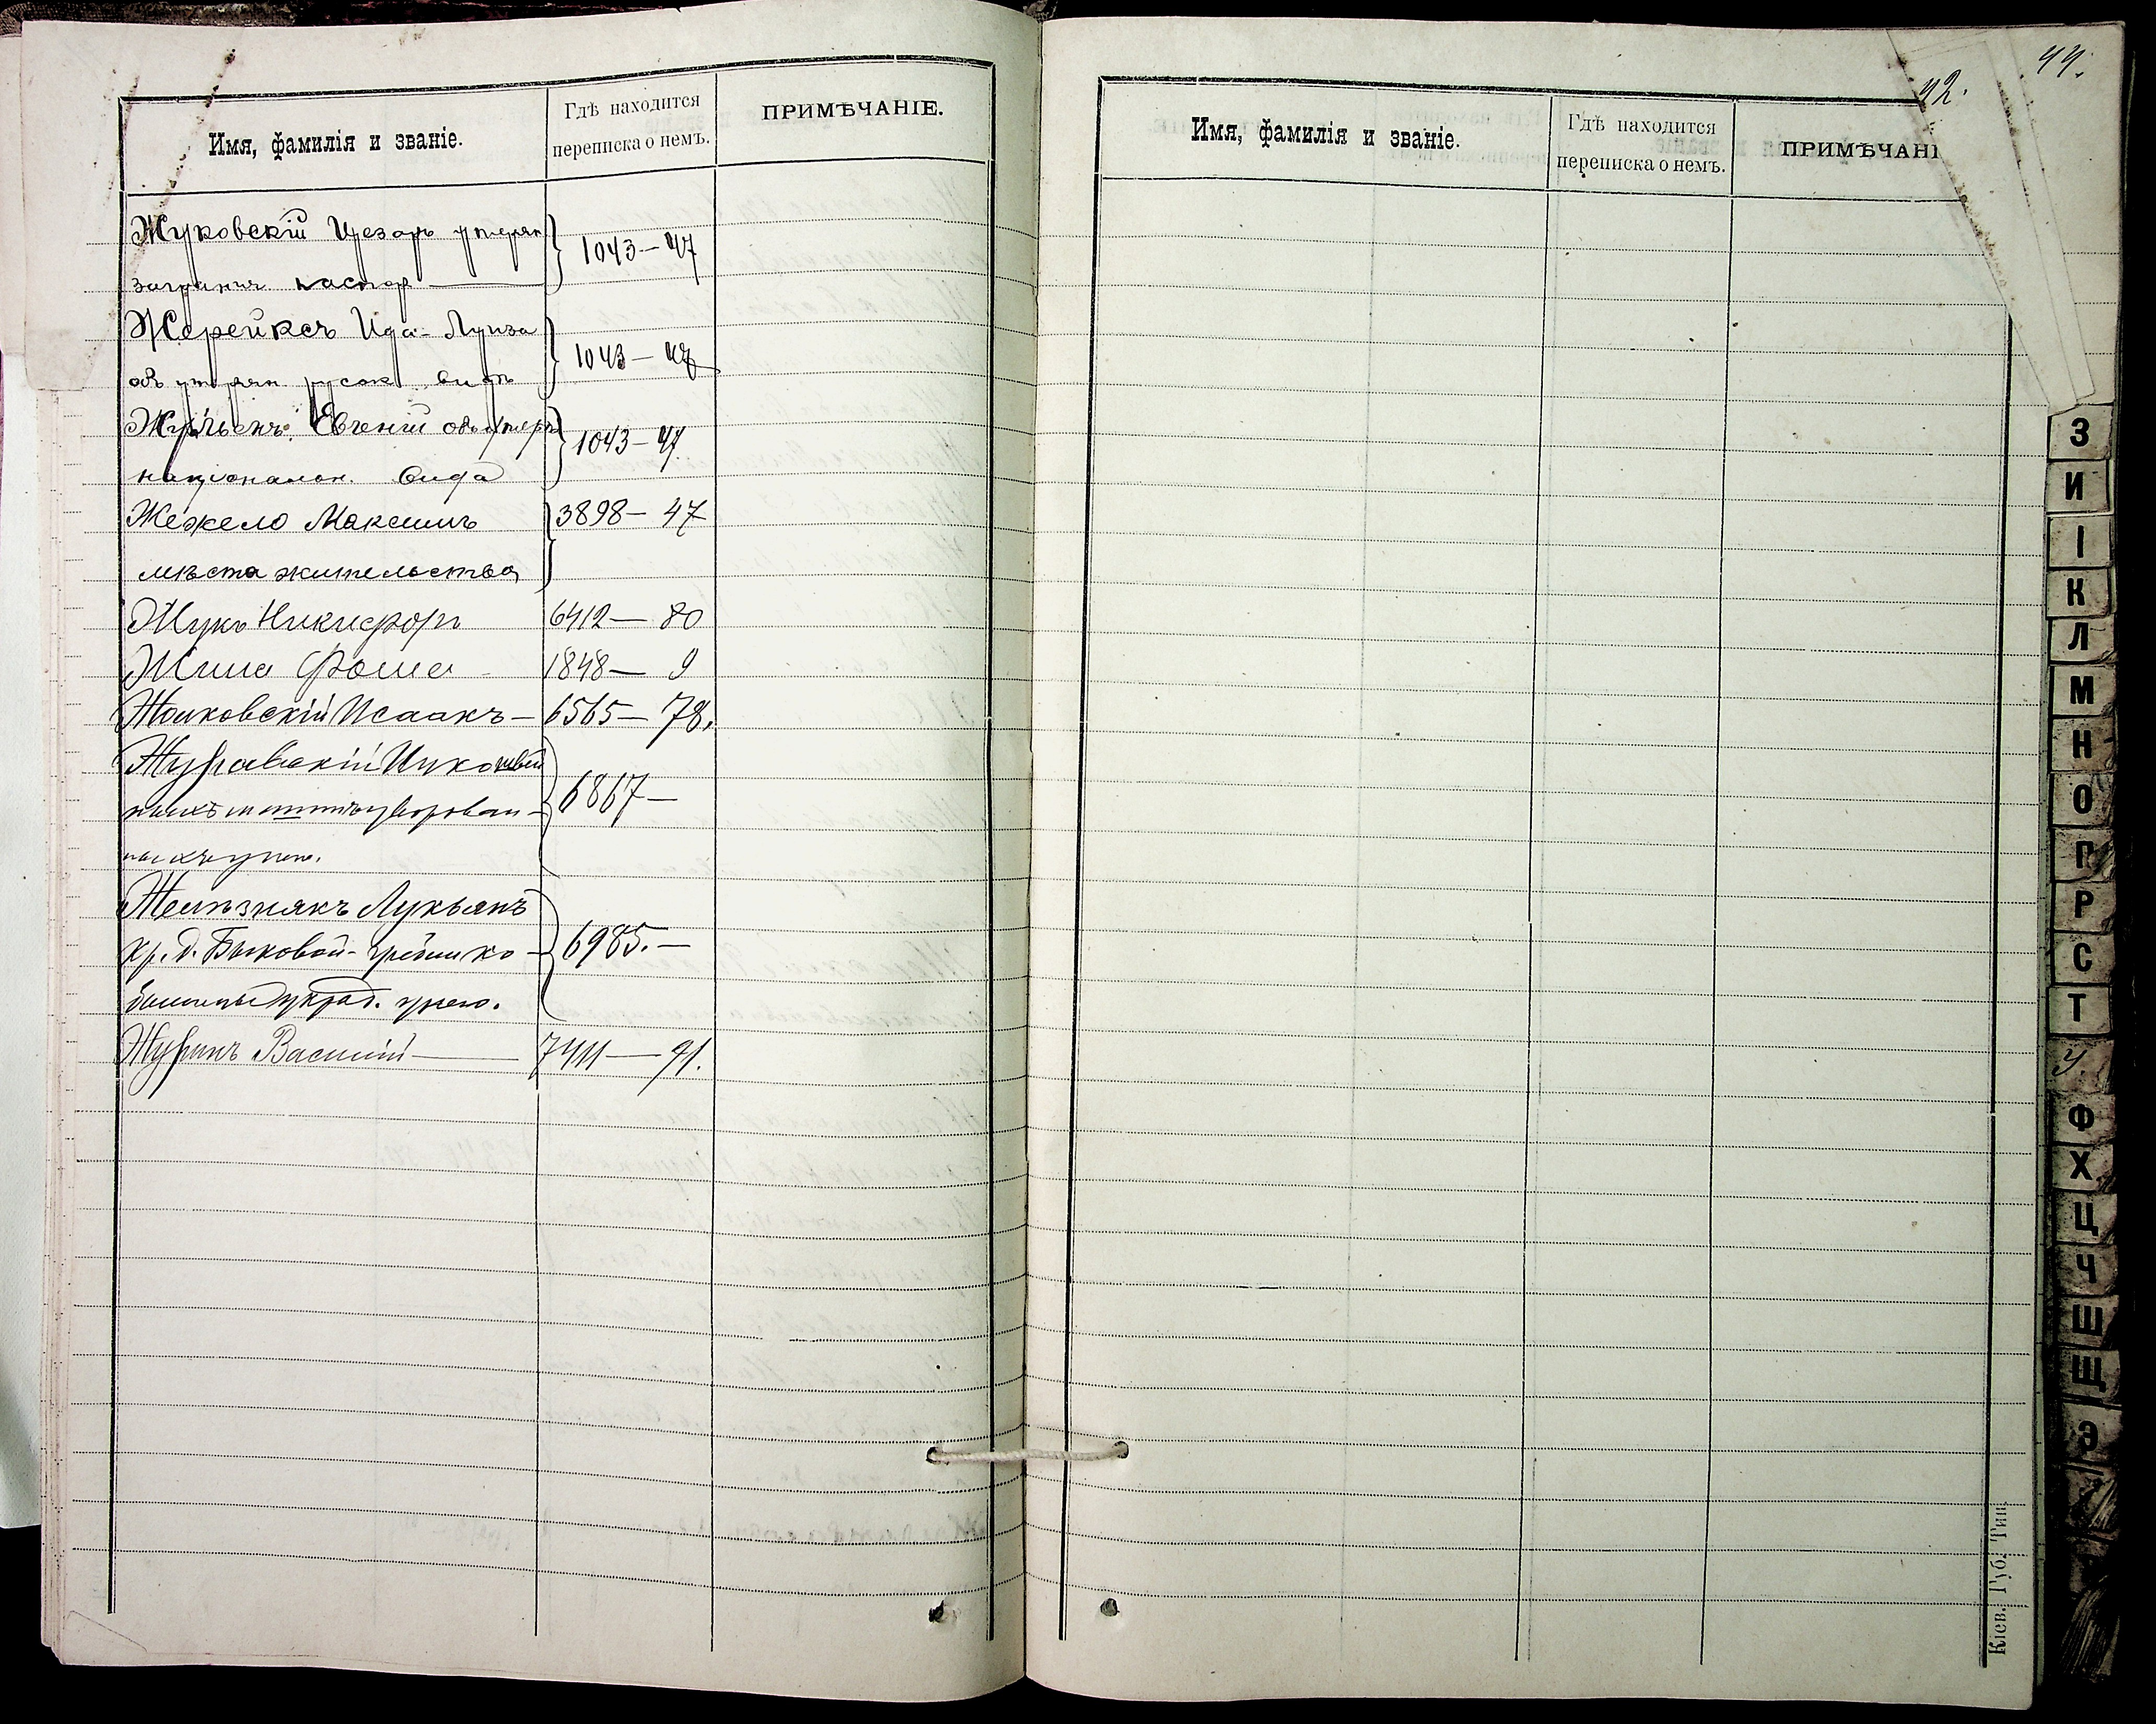 Имя, фамилія и званіе.
Гдѣ находится
переписка о немъ.
ПРИМѢЧАНІЕ.
Жуковскій Цезарь утерян 1043—47
загранич. паспор
Жерейксъ Ида-Луиза 1043—47
объ утерян русск. вида
Жульенъ Евгеній объ утер 1043—47
націоналон. вида
Жежело Максимъ 3898—47
мѣста жительства
Жукъ Никифоръ 6412—80
Жила Фома 1848—9
Жолковскій Исаакъ—6565—78.
Журавскій 6867—
Желѣзнякъ Лукьянъ
кр. д. Быковой-гребли ко- 6985.—
украд.
Журинъ Василій—7411—91.
Имя, фамилія и званіе.
Гдѣ находится
переписка о немъ.
ПРИМѢЧАНІ
42.
44.
З
И
І
К
Л
М
Н
О
П
Р
С
Т
У.
Ф
Х
Ц
Ч
Ш
Щ
Э
Кіев. Губ. Тип.